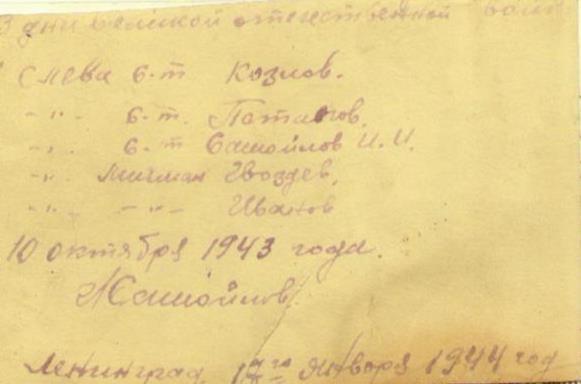 В дни великой отечественной войн
Слева б-т Козлов.
-"- б-т. Потапов.
-"- б-т Самойлов И. И.
-"- Мичман Гвоздев,
-"- -"- Иванов
10 октября 1943 года.
Самойлов.
Ленинград, 17го января 1944 год